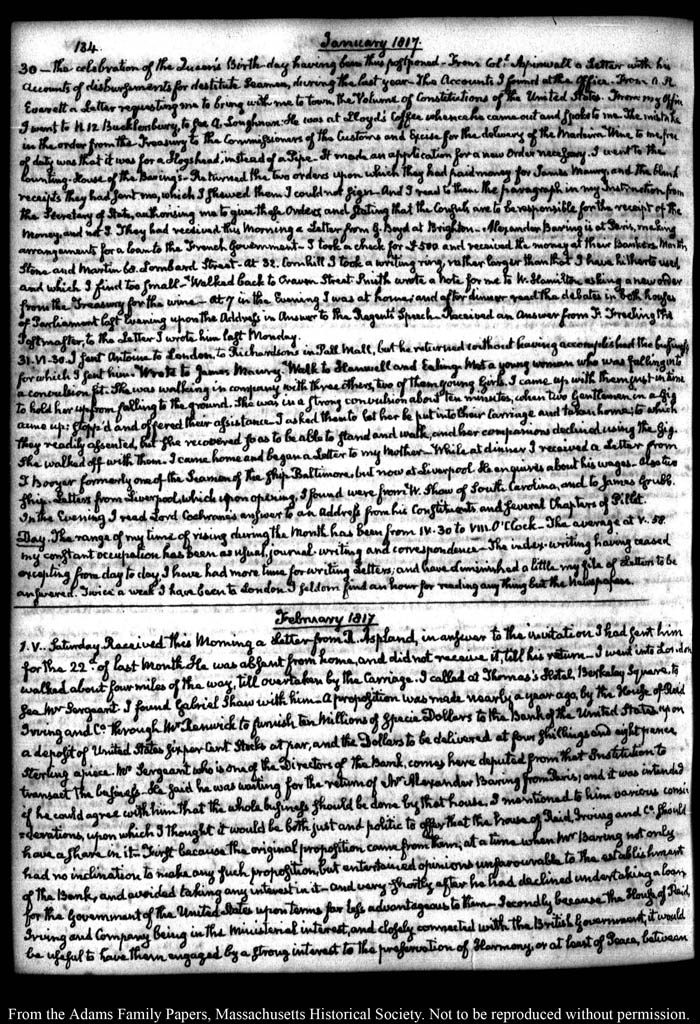 134.
January 1817.
30 — the celebration of the Queen's Birth-day having been thus postponed — From Col.ⁱ Aspinwall a Letter with his
Accounts of disbursements for destitute Seamen, during the last year — The Accounts I found at the Office. From A. H.
Everett a Letter requesting me to bring with me to town, the Volume of Constitutions of the United States. From my Office
I went to N. 12 Bucklersbury, to see A. Loughnan. He was at Lloyd's Coffee whence he came out and spoke to me. The mistake
in the order from the Treasury to the Commissioners of the Customs and Excise for the delivery of the Madeira Wine to me, free
of duty was that it was for a Hogshead, instead of a Pipe. It made an application for a new Order necessary. I went to the
Counting-House of the Barings. Returned the two orders upon which they had paid money for James Maury, and the blank
receipts they had sent me, which I shewed them I could not sign. And I read to them the paragraph in my Instruction from
the Secretary of State, authorising me to give those Orders, and stating that the Consuls are to be responsible for the receipt of the
Money, and not I. They had received this Morning a Letter from G. Boyd at Brighton. Alexander Baring is at Paris, making
arrangements for a loan to the French Government — I took a check for £500 and received the money at their Bankers Martin,
Stone and Martin 68. Lombard Street — At 32. Cornhill I took a writing ring, rather larger than that I have hitherto used
and which I find too small. Walked back to Craven Street. Smith wrote a Note for me to W. Hamilton asking a new order
from the Treasury for the wine — At 7 in the Evening I was at home; and after dinner read the debates in both houses
of Parliament last Evening upon the Address in Answer to the Regent's Speech. Received an Answer from F. Freeling the
Postmaster, to the Letter I wrote him last Monday.
31. VI.30. I sent Antoine to London, to Richardson's in Pall Mall, but he returned without having accomplished the business
for which I sent him. Wrote to James Maury. Walk to Hanwell and Ealing. Met a young woman who was falling into
a convulsion fit. She was walking in company with three others, two of them young Girls. I came up with them just in time
to hold her up from falling to the ground. She was in a strong convulsion about ten minutes, when two Gentlemen in a Gig
came up: stopp'd and offered their assistance. I asked them to let her be put into their Carriage and taken home; to which
they readily assented, but she recovered so as to be able to stand and walk, and her companions declined using the Gig.
She walked off with them. I came home and began a Letter to my Mother. While at dinner I received a Letter from
I Booyer formerly one of the Seamen of the Ship Baltimore, but now at Liverpool. He enquires about his wages. Also two
Ship-Letters from Liverpool, which upon opening, I found were from W. Shaw of South Carolina, and to James Grubb.
In the Evening I read Lord Cochrane's answer to an Address from his Constituents and several Chapters of Pillet.
Day. The range of my time of rising during the Month has been from IV.30 to VIII. O'Clock — The average at V.58.
my constant occupation has been as usual, journal-writing and correspondence — The index-writing having ceased
excepting from day to day, I have had more time for writing Letters, and have diminished a little my file of Letters to be
answered. Twice a week I have been to London. I seldom find an hour for reading any thing but the Newspapers.
February 1817.
1. V. Saturday. Received this Morning a Letter from R. Aspland, in answer to the invitation I had sent him
for the 22.ᵈ of last Month. He was absent from home, and did not receive it, till his return — I went into London
walked about four miles of the way, till overtaken by the Carriage. I called at Thomas's Hotel, Berkeley Square, to
see Mr Sergeant. I found Gabriel Shaw with him — A proposition was made nearly a year ago, by the House of Reid
Irving and Cº through Mr Renwick to furnish ten Millions of Specie Dollars to the Bank of the United States, upon
a deposit of United States six per Cent Stocks at par, and the Dollars to be delivered at four shillings and eight pence
Sterling apiece. Mr Sergeant who is one of the Directors of the Bank, comes here deputed from that Institution to
transact the business. He said he was waiting for the return of Mr Alexander Baring from Paris, and it was intended
if he could agree with him that the whole business should be done by that house. I mentioned to him various consi-
-derations, upon which I thought it would be both just and politic to offer that the house of Reid, Irving and Cº. should
have a share in it — First because the original proposition came from them, at a time when Mr Baring not only
had no inclination to make any such proposition, but entertained opinions unfavourable to the establishment
of the Bank, and avoided taking any interest in it — and very shortly after he had declined undertaking a loan
for the Government of the United States upon terms far less advantageous to them. Secondly because the House of Reid,
Irving and Company being in the Ministerial interest, and closely connected with the British Government, it would
be useful to have them engaged by a strong interest to the preservation of Harmony, or at least of Peace, between
From the Adams Family Papers, Massachusetts Historical Society. Not to be reproduced without permission.